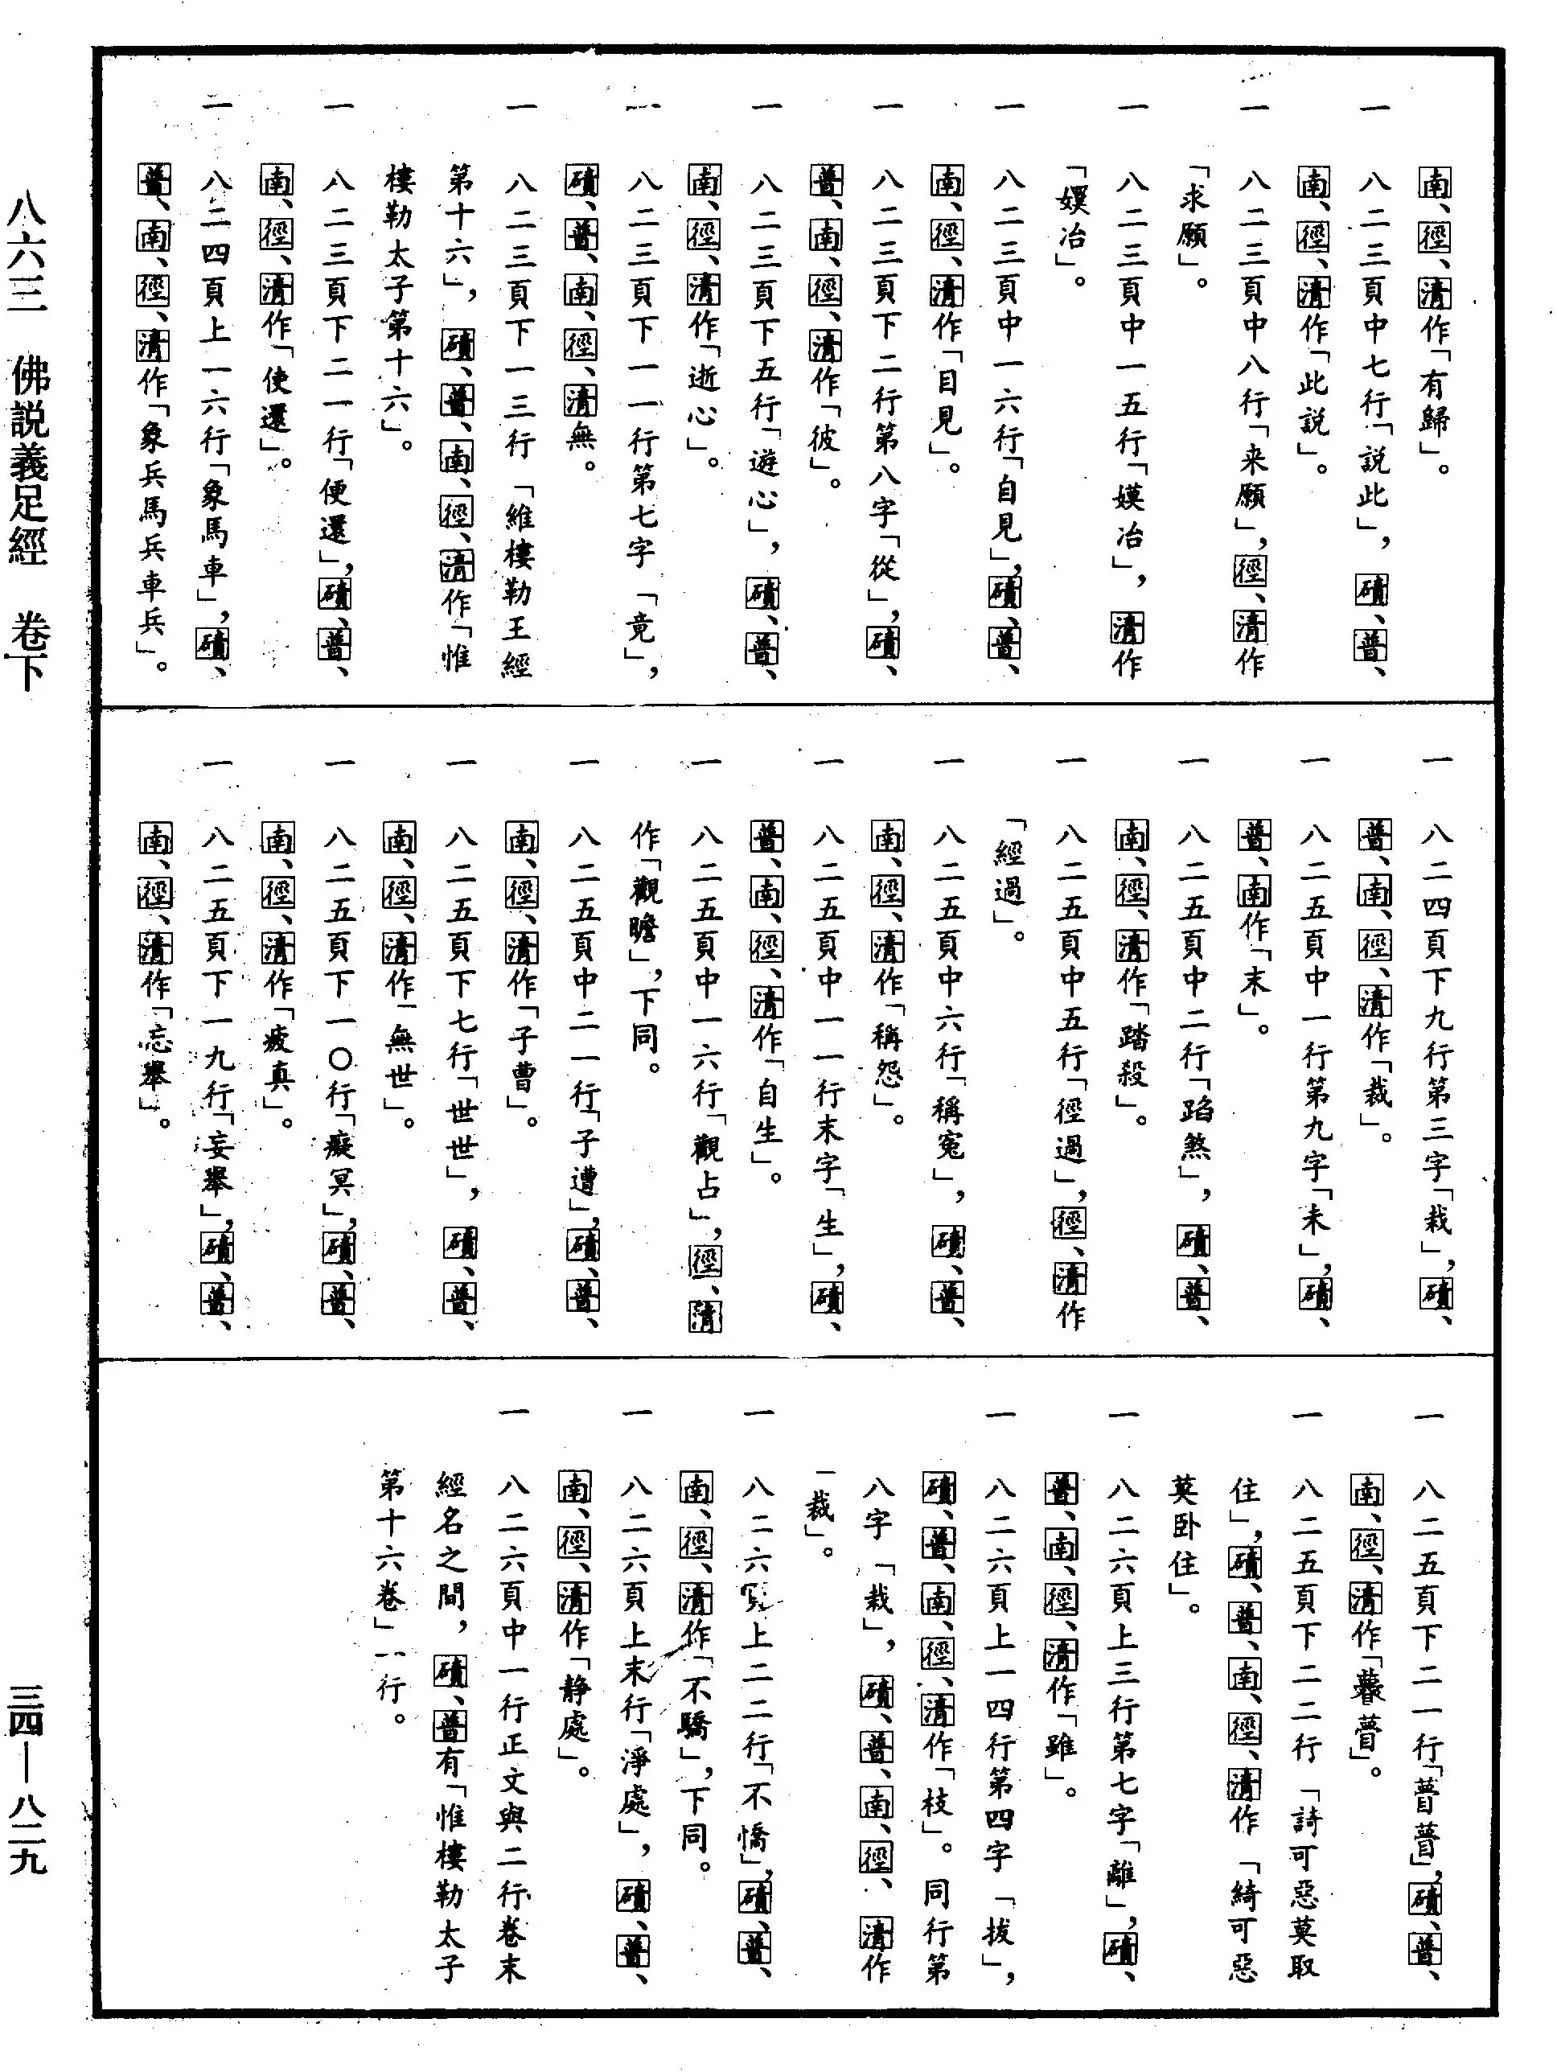 南、徑、清作「有歸」。
一 八二三頁中七行「說此」，磧、普、
南、徑、清作「此說」。
一 八二三頁中八行「来願」，徑、清作
「求願」。
一 八二三頁中一五行「媄冶」，清作
「㜷冶」。
一 八二三頁中一六行「自見」，磧、普、
南、徑、清作「目見」。
一 八二三頁下二行第八字「從」，磧、
普、南、徑、清作「彼」。
一 八二三頁下五行「遊心」，磧、普、
南、徑、清作「逝心」。
一 八二三頁下一一行第七字「竟」，
磧、普、南、徑、清無。
一 八二三頁下一三行「維樓勒王經
第十六」，磧、普、南、徑、清作「惟
樓勒太子第十六」。
一 八二三頁下二一行「便還」，磧、普、
南、徑、清作「使還」。
一 八二四頁上一六行「象馬車」，磧、
普、南、徑、清作「象兵馬兵車兵」。
一 八二四頁下九行第三字「栽」，磧、
普、南、徑、清作「裁」。
一 八二五頁中一行第九字「未」，磧、
普、南作「末」。
一 八二五頁中二行「蹈煞」，磧、普、
南、徑、清作「踏殺」。
一 八二五頁中五行「徑過」，徑、清作
「經過」。
一 八二五頁中六行「稱寃」，磧、普、
南、徑、清作「稱怨」。
一 八二五頁中一一行末字「生」，磧、
普、南、徑、清作「自生」。
一 八二五頁中一六行「觀占」，徑、清
作「觀瞻」，下同。
一 八二五頁中二一行「子遭」，磧、普、
南、徑、清作「子曹」。
一 八二五頁下七行「世世」，磧、普、
南、徑、清作「無世」。
一 八二五頁下一〇行「癡冥」，磧、普、
南、徑、清作「疲真」。
一 八二五頁下一九行「妄舉」，磧、普、
南、徑、清作「忘舉」。
一 八二五頁下二一行「瞢瞢」，磧、普、
南、徑、清作「瞢」。
一 八二五頁下二二行「詩可惡莫取
住」，磧、普、南、徑、清作「綺可惡
莫卧住」。
一 八二六頁上三行第七字「離」，磧、
普、南、徑、清作「雖」。
一 八二六頁上一四行第四字「拔」，
磧、普、南、徑、清作「枝」。同行第
八字「栽」，磧、普、南、徑、清作
「裁」。
一 八二六頁上二二行「不憍」，磧、普、
南、徑、清作「不驕」，下同。
一 八二六頁上末行「淨處」，磧、普、
南、徑、清作「静處」。
一 八二六頁中一行正文與二行卷末
經名之間，磧、普有「惟樓勒太子
第十六卷」一行。
八六三 佛説義足經 卷下
三四—八二九